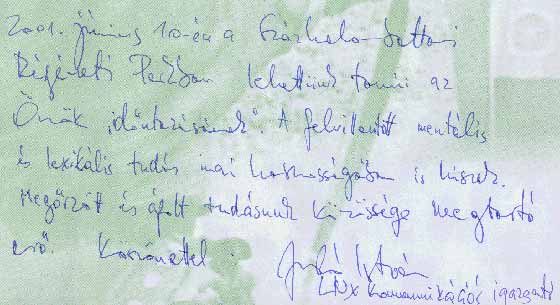 2001. június 10-én a Százhalombattai
Régészeti Parkban lehettünk tanúi az
Önök "időutazásának". A felvillantott mentális
és lexikális tudás mai hasznosságában is hiszek.
Megőrzött és ápolt tudásunk közössége megtartó
erő. Köszönettel. István
kommunikációs igazgató